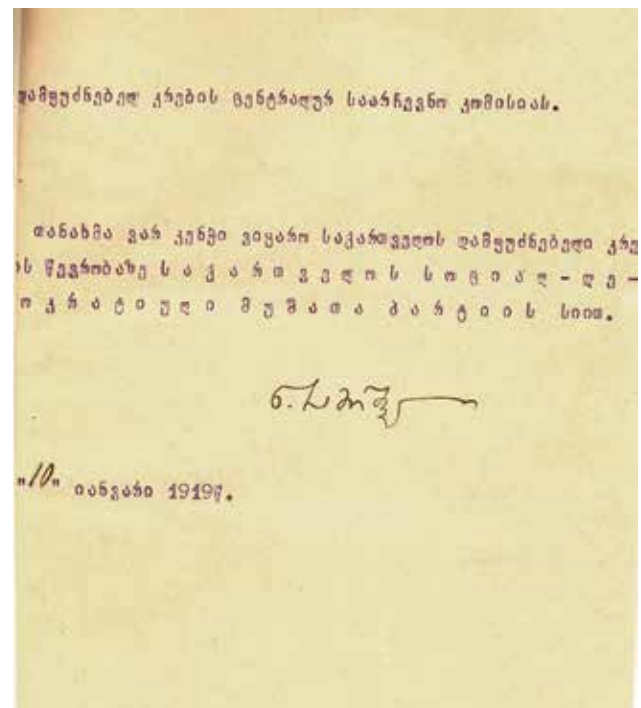 დამფუძნებელ კრების ცენტრალურ საარჩევნო კომისიას.
თანახმა ვარ კენჭი ვიყარო საქართველოს დამფუძნებელი კრე
ის წევრობაზე ს ა ქ ა რ თ ვ ე ლ ო ს ს ო ც ი ა ლ - დ ე -
ო კ რ ა ტ ი უ ლ ი მ უ შ ა თ ა პ ა რ ტ ი ი ს სიით.
ნ.
"10" იანვარი 1919წ.